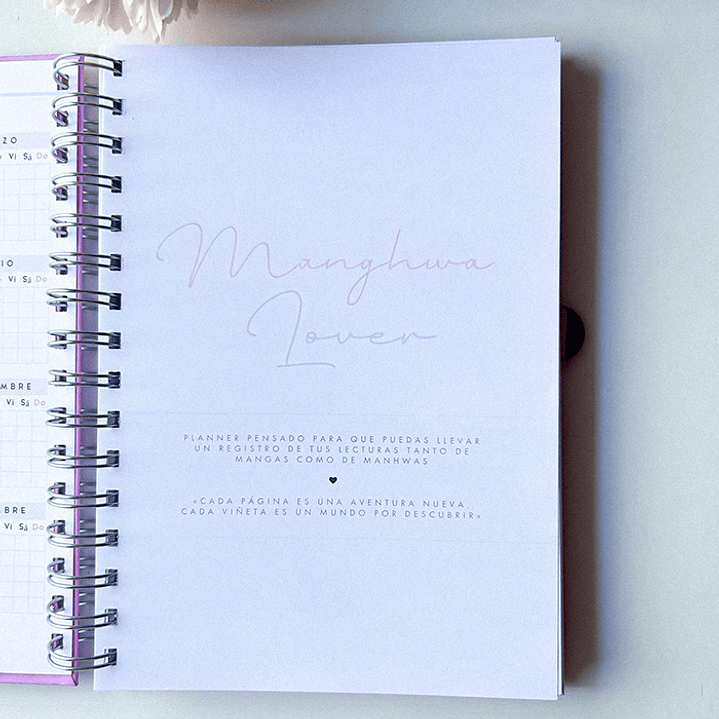 ZO
Vi Sá Do
IO
Vi Sá Do
MBRE
Vi Sá Do
BRE
Vi Sá Do
Manghwa
Lover
PLANNER PENSADO PARA QUE PUEDAS LLEVAR
UN REGISTRO DE TUS LECTURAS TANTO DE
MANGAS COMO DE MANHWAS
«CADA PÁGINA ES UNA AVENTURA NUEVA,
CADA VIÑETA ES UN MUNDO POR DESCUBRIR»